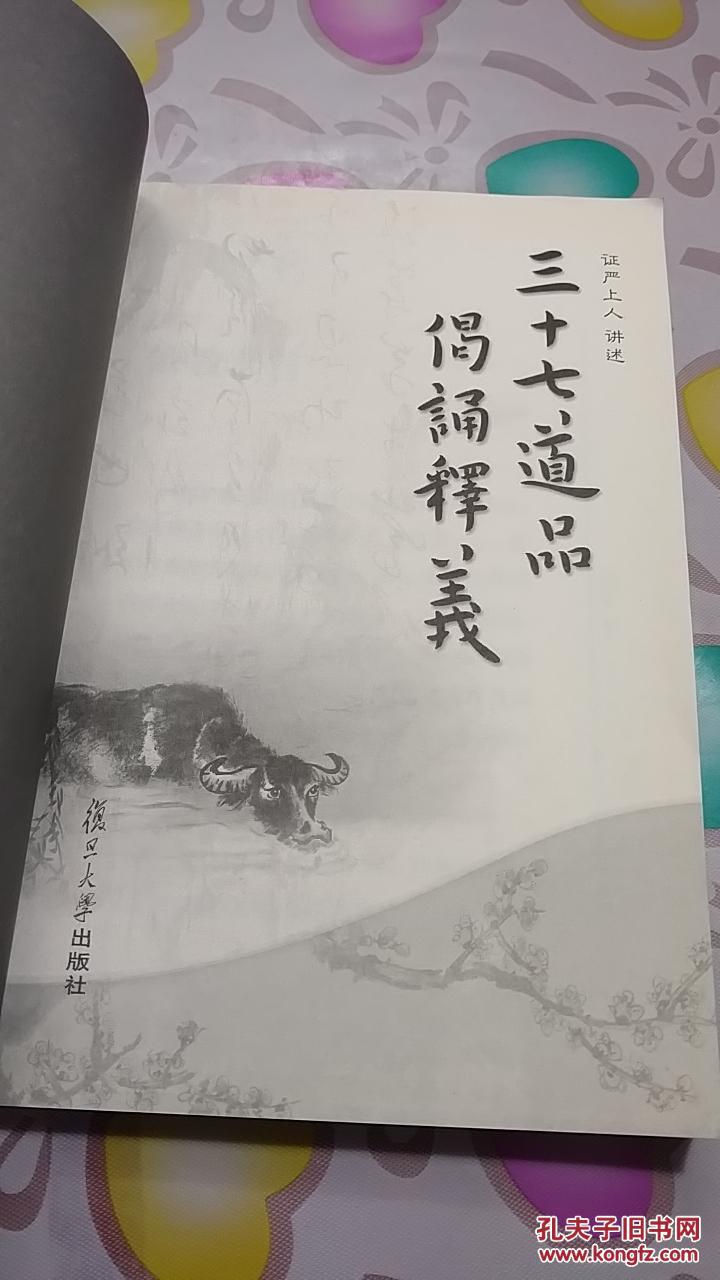 证严上人 讲述
三十七道品
偈誦釋義
復旦大學出版社
孔夫子旧书网
www.kongfz.com